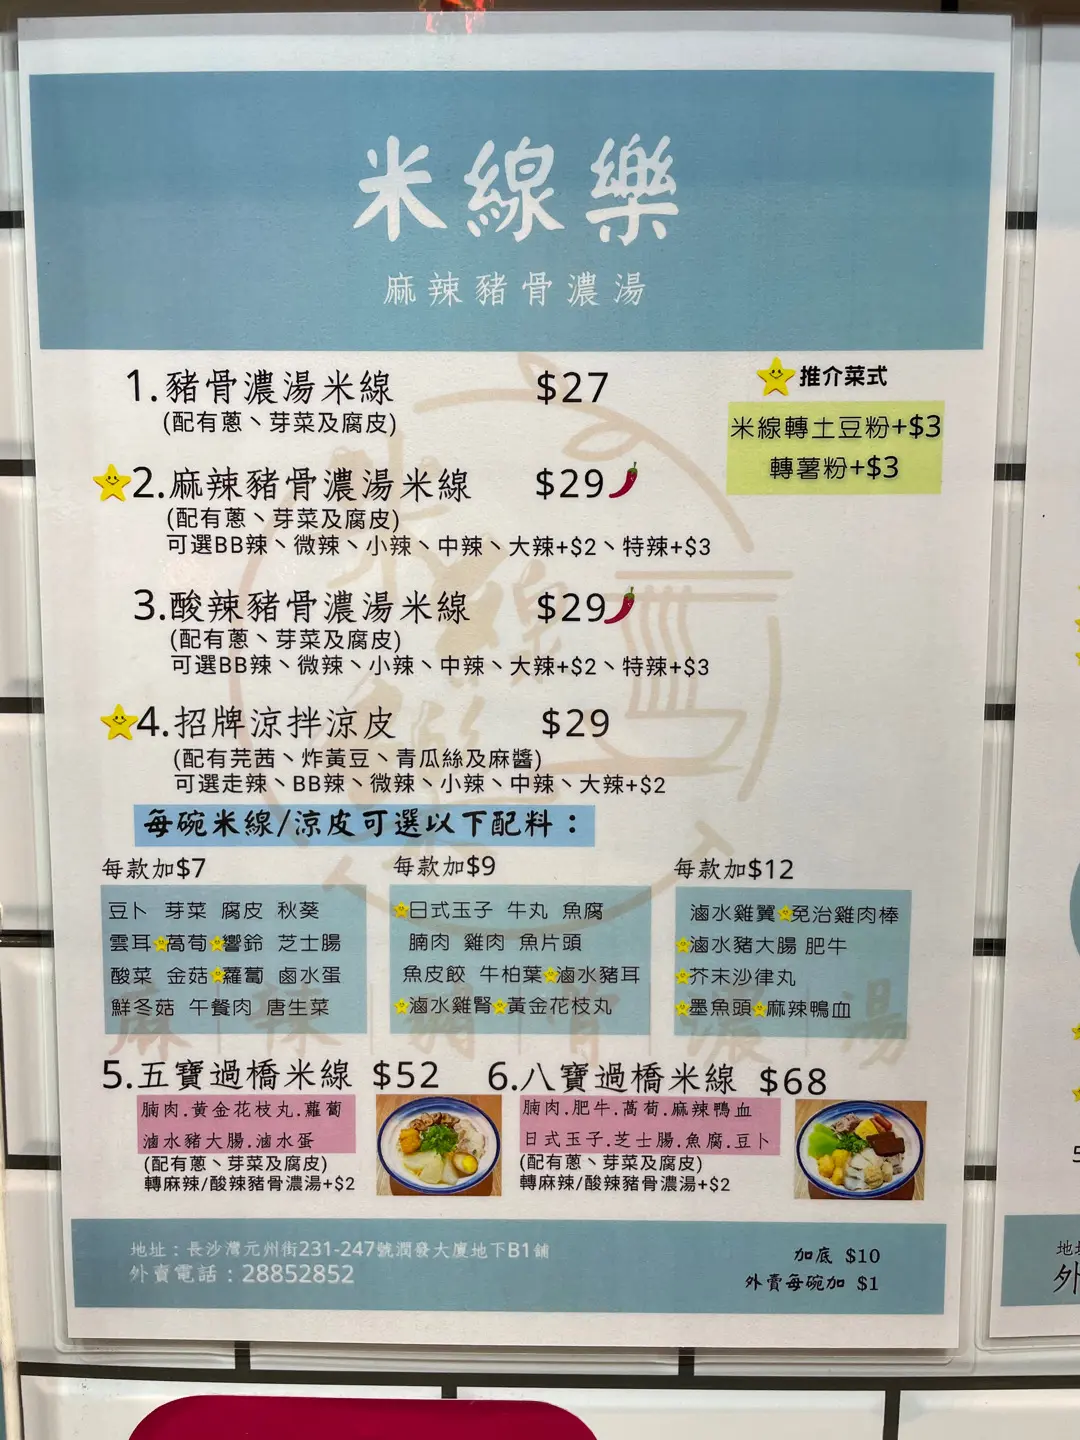 米線樂
麻辣豬骨濃湯
1.豬骨濃湯米線 $27
(配有蔥、芽菜及腐皮)
推介菜式
米線轉土豆粉+$3
轉薯粉+$3
2.麻辣豬骨濃湯米線 $29
(配有蔥、芽菜及腐皮)
可選BB辣、微辣、小辣、中辣、大辣+$2、特辣+$3
3.酸辣豬骨濃湯米線 $29
(配有蔥、芽菜及腐皮)
可選BB辣、微辣、小辣、中辣、大辣+$2、特辣+$3
4.招牌涼拌涼皮 $29
(配有芫茜、炸黃豆、青瓜絲及麻醬)
可選走辣、BB辣、微辣、小辣、中辣、大辣+$2
每碗米線/涼皮可選以下配料：
每款加$7
豆卜 芽菜 腐皮 秋葵
雲耳 萵荀 響鈴 芝士腸
酸菜 金菇 蘿蔔 鹵水蛋
鮮冬菇 午餐肉 唐生菜
每款加$9
日式玉子 牛丸 魚腐
腩肉 雞肉 魚片頭
魚皮餃 牛柏葉 滷水豬耳
滷水雞腎 黃金花枝丸
每款加$12
滷水雞翼 免治雞肉棒
滷水豬大腸 肥牛
芥末沙律丸
墨魚頭 麻辣鴨血
麻 辣 豬 骨 濃 湯
5.五寶過橋米線 $52
腩肉.黃金花枝丸.蘿蔔
滷水豬大腸.滷水蛋
(配有蔥、芽菜及腐皮)
轉麻辣/酸辣豬骨濃湯+$2
6.八寶過橋米線 $68
腩肉.肥牛.萵荀.麻辣鴨血
日式玉子.芝士腸.魚腐.豆卜
(配有蔥、芽菜及腐皮)
轉麻辣/酸辣豬骨濃湯+$2
地址：長沙灣元州街231-247號潤發大廈地下B1舖
外賣電話：28852852
加底 $10
外賣每碗加 $1
地
外